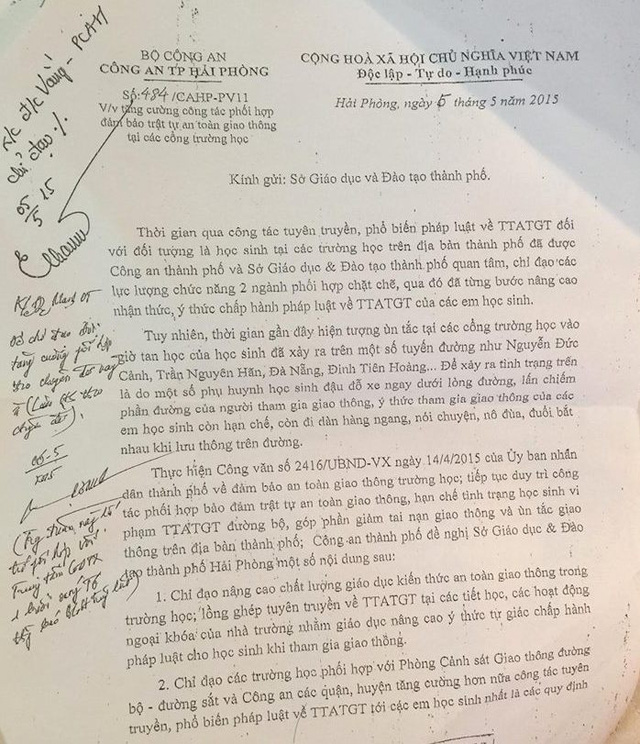 BỘ CÔNG AN
CÔNG AN TP HẢI PHÒNG
Số: 484/CAHP-PV11
V/v tăng cường công tác phối hợp
đảm bảo trật tự an toàn giao thông
tại các cổng trường học
CỘNG HOÀ XÃ HỘI CHỦ NGHĨA VIỆT NAM
Độc lập - Tự do - Hạnh phúc
Hải Phòng, ngày 5 tháng 5 năm 2015
Kính gửi: Sở Giáo dục và Đào tạo thành phố.
Thời gian qua công tác tuyên truyền, phổ biến pháp luật về TTATGT đối
với đối tượng là học sinh tại các trường học trên địa bàn thành phố đã được
Công an thành phố và Sở Giáo dục & Đào tạo thành phố quan tâm, chỉ đạo các
lực lượng chức năng 2 ngành phối hợp chặt chẽ, qua đó đã từng bước nâng cao
nhận thức, ý thức chấp hành pháp luật về TTATGT của các em học sinh.
Tuy nhiên, thời gian gần đây hiện tượng ùn tắc tại các cổng trường học vào
giờ tan học của học sinh đã xảy ra trên một số tuyến đường như Nguyễn Đức
Cảnh, Trần Nguyên Hãn, Đà Nẵng, Đinh Tiên Hoàng... Để xảy ra tình trạng trên
là do một số phụ huynh học sinh đậu đỗ xe ngay dưới lòng đường, lấn chiếm
phần đường của người tham gia giao thông, ý thức tham gia giao thông của các
em học sinh còn hạn chế, còn đi dàn hàng ngang, nói chuyện, nô đùa, đuổi bắt
nhau khi lưu thông trên đường.
Thực hiện Công văn số 2416/UBND-VX ngày 14/4/2015 của Ủy ban nhân
dân thành phố về đảm bảo an toàn giao thông trường học; tiếp tục duy trì công
tác phối hợp bảo đảm trật tự an toàn giao thông, hạn chế tình trạng học sinh vi
phạm TTATGT đường bộ, góp phần giảm tai nạn giao thông và ùn tắc giao
thông trên địa bàn thành phố; Công an thành phố đề nghị Sở Giáo dục & Đào
tạo thành phố Hải Phòng một số nội dung sau:
1. Chỉ đạo nâng cao chất lượng giáo dục kiến thức an toàn giao thông trong
trường học; lồng ghép tuyên truyền về TTATGT tại các tiết học, các hoạt động
ngoại khóa của nhà trường nhằm giáo dục nâng cao ý thức tự giác chấp hành
pháp luật cho học sinh khi tham gia giao thông.
2. Chỉ đạo các trường học phối hợp với Phòng Cảnh sát Giao thông đường
bộ - đường sắt và Công an các quận, huyện tăng cường hơn nữa công tác tuyên
truyền, phổ biến pháp luật về TTATGT tới các em học sinh nhất là các quy định